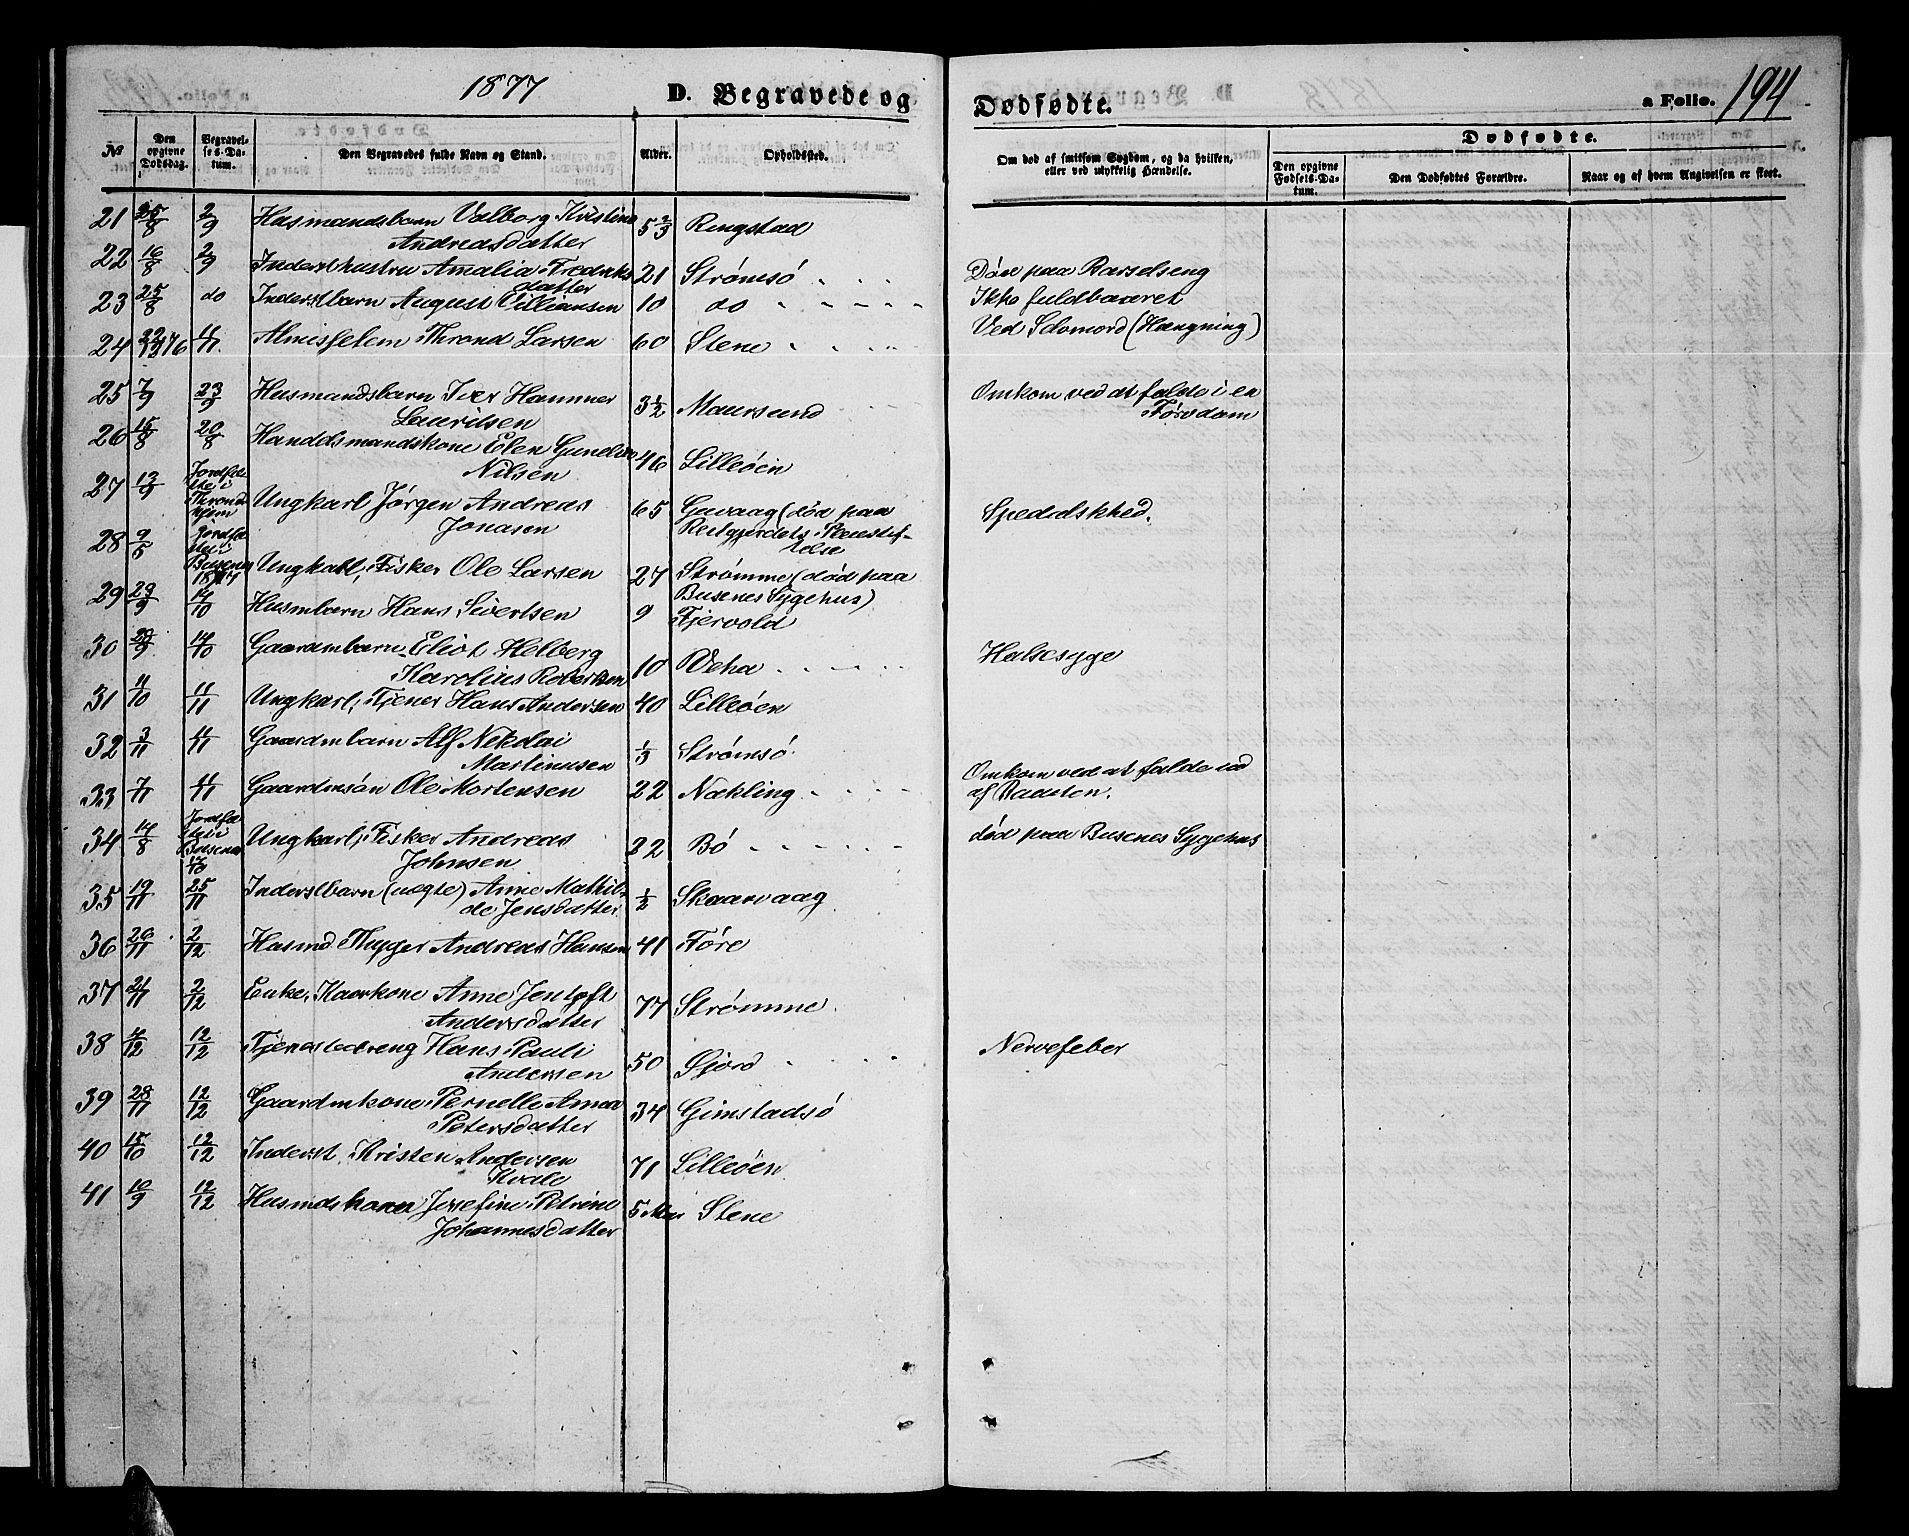 1877 D. Begravede og Dødfødte. a Folio. 194
No. Den opgivne Dødsdag. Begravelses-Datum. Den Begravedes fulde Navn og Stand. Alder. Opholdssted. Om død af smitsom Sygdom, og da hvilken, eller ved ulykkelig Hændelse. Dødfødte.
Den opgivne Fødsels-Datum. Den Dødfødtes Forældre. Naar og af hvem Angivelsen er skeet.
21 25/8 2/9 Husmandsbarn Valborg Kristine 5 2/3 Ringstad
Andreasdatter
22 16/8 2/9 Indersthustru Amalia Fredriks 21 Strømsö Döde paa Barselseng
datter
23 25/8 do Inderstbarn August Villiamsen 10 do Ikke fuldbaaret
24 22/12 76 11/11 Almisselem Thrond Larsen 60 Stene Ved Selvmord (Hængning)
25 7/9 23/9 Husmandsbarn Iver Hammer 3 1/2 Maursund Omkom ved at falde i en
Lauritsen Törvdam
26 15/8 20/8 Handelsmandskone Elen Gundine 46 Lilleöen
Nilsen
27 12/9 Jordfæstet i Throndhjem Ungkarl Jörgen Andreas 65 Guvaag (död paa Spedalskhed.
Jonasen Reitgjerdets Pleiestiftelse
28 9/5 Jordfæstet i Busenes 1877 Ungkarl, Fisker Ole Larsen 27 Strømme (död paa
Busenes Sygehus)
29 23/9 14/10 Husmbarn Hans Sivertsen 9 Fjervold
30 29/9 14/10 Gaardmbarn Eliot Helberg Halsesyge
Karolius Robertsen 10 Veha
31 11/10 11/11 Ungkarl, Tjener Hans Andersen 40 Lilleöen
32 3/11 11/11 Gaardmbarn Alf Nikolai 1/3 Strømsö
Martinusen
33 7/11 11/11 Gaardmsön Ole Mortensen 22 Nækling Omkom ved at falde ud
af Baaden.
34 14/8 Jordfæstet i Busenes 17/10 Ungkarl, Fisker Andreas 22 Bö död paa Busenes Sygehus
Johnsen
35 19/11 25/11 Inderstbarn (uægte) Anne Mathil- 1/2 Skaarvaag
de Jensdatter
36 26/11 2/12 Husmd Thyger Andreas Hansen 41 Före
37 21/11 2/12 Enke, Kaarkone Anne Jentoft 77 Strømme
Andersdatter
38 4/12 12/12 Tjenestedreng Hans Pauli 50 Gjord Nervefeber
Andersen
39 28/11 12/12 Gaardmkone Pernelle Anna 34 Gimstadsö
Petersdatter
40 15/10 12/12 Inderst Kristen Andersen 71 Lilleöen
Kvale
41 10/9 12/12 Josefine Petrine 5 Stene
Johannesdatter